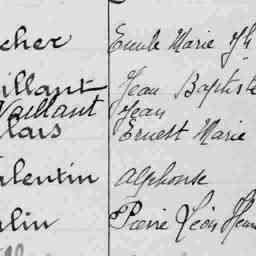 cher Emile Marie Jh
illant Jean Baptiste
Vaillant Jean
lais Ernest Marie
lentin Alphonse
lin Pierre Léon Henri